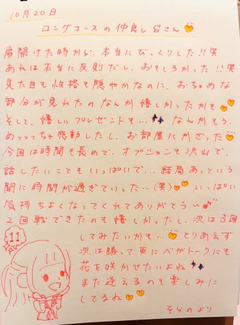 10月20日
ロングコースの仲良しSさん🧡
扉開けた時から、本当にびっくりした!!笑
あれは本当に反則だし、おもしろかった!!笑
見た目も性格も穏やかなのに、おちゃめな
部分が見れたのなんか嬉しかったかも🧡
そして、嬉しいプレゼントも…✨なんかもう、
めっっっちゃ感動したし、お部屋にかざった🧡
今回は時間も長めで、オプションも沢山で、
話したいこともいっぱいで…結局あっという
間に時間が過ぎていった…(笑)🧡いっぱい
気持ちよくなってくれてありがとう
2回戦できたのも嬉しかったし、次は3回
してみたいかも…🧡とりあえず
次は勝って更にベガトークにも
花を咲かせたいよね✨
また逢えるのも楽しみに
してるね🧡🧡
!!
より